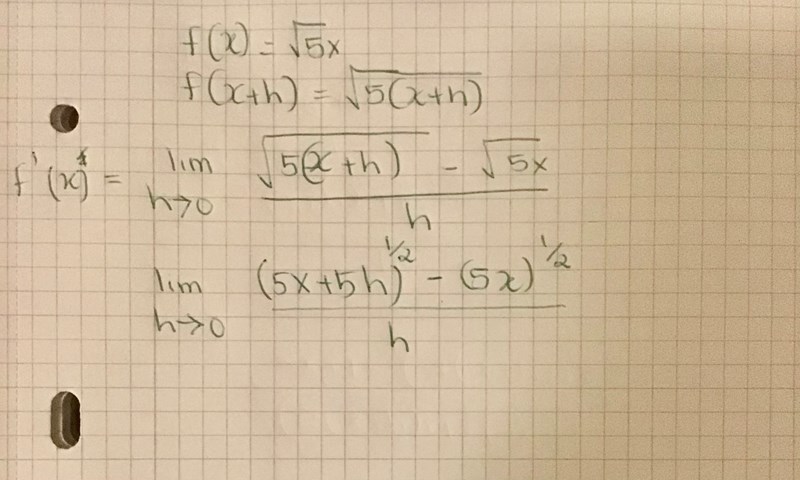 f(x) = √5x
f(x+h) = √5(x+h)
f'(x) = lim h→0 (√5(x+h) - √5x) / h
lim h→0 ((5x+5h)^1/2 - (5x)^1/2) / h